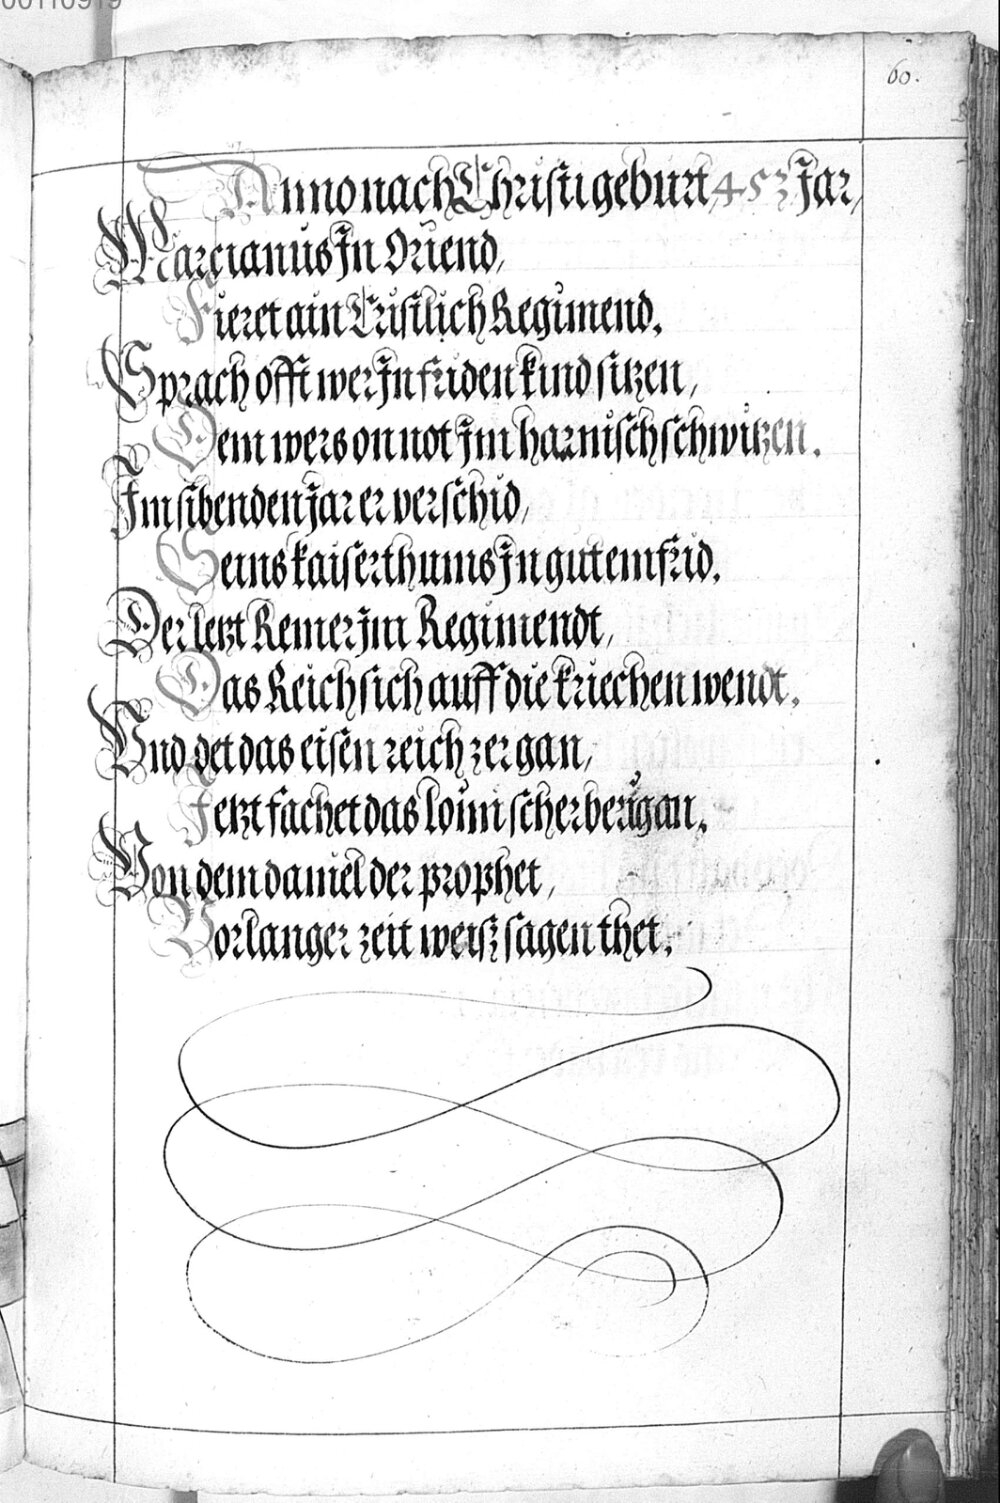 00110919
60.
Anno nach Christi geburt, 453 Jar,
Marcianus Jn Oriend,
Fieret ain Cristlich Regimend.
Sprach offt wer Jn friden kind sitzen,
Dem wers on not Jm harnisch schwitzen.
Jm sibenden Jar er verschid,
Seins kaiserthums Jn gutem frid.
Der letzt Remer Jm Regimendt,
Das Reich sich auff die kriechen wendt.
Vnd det das eisen reich zergan,
Jetzt fachet das
Von dem daniel der prophet,
Vor langer zeit weiszsagen thet.